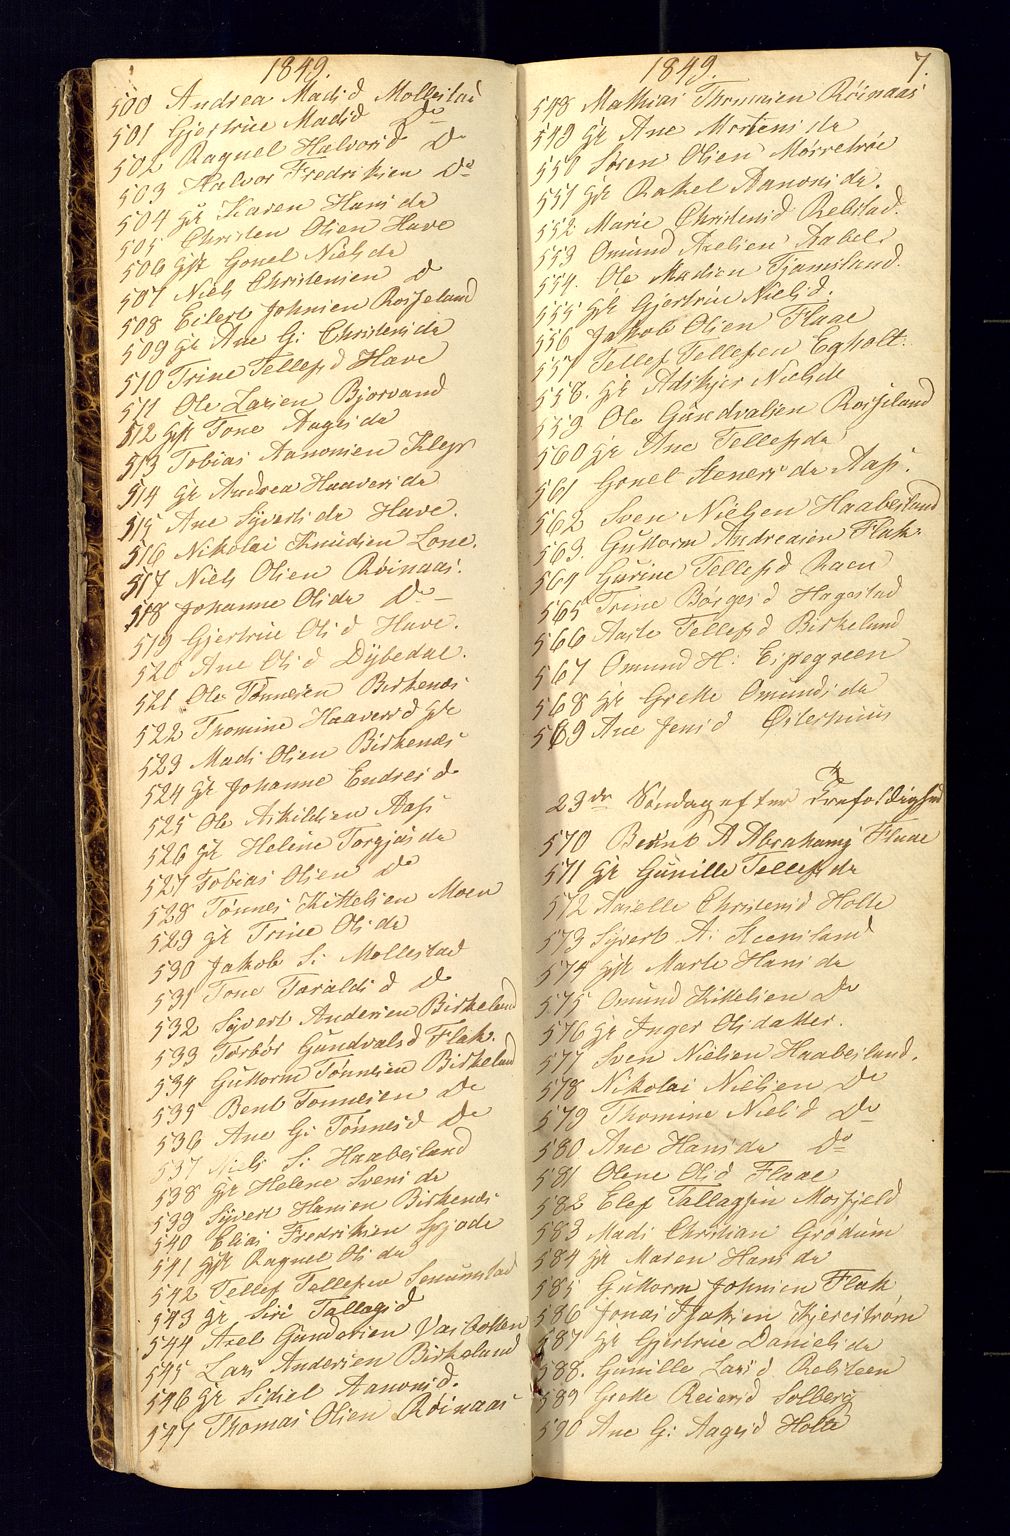 1849.
500 Andrea Madsd Mollestad
501 Gjertrue Madsd Do
502 Ragnel Halvorsd Do
503 Halvor Fredriksen Do
504 Gk Karen Hans da
505 Christen Olsen Have
506 Gk Gonel Niels da
507 Niels Christensen Do
508 Eilert Johnsen Rosseland
509 Gk Ane G: Christens da
510 Trine Tellefsd Have
511 Ole Larsen Bjorvand
512 Gk Tone Aages da
513 Tobias Aanonsen Klep
514 Gk Andrea Haavers da
515 Ane Syverts da Have.
516 Nikolai Knudsen Lone.
517 Niels Olsen Röinaas.
518 Johanne Ols da Do
519 Gjertrue Ols d Have.
520 Ane Ols d Dybedal.
521 Ole Tönnesen Birkenæs
522 Thomine Haaversd Gk
523 Mads Olsen Birkenæs
524 Gk Johanne Endres d
525 Ole Askildsen Aas
526 Gk Helene Torgjus da
527 Tobias Olsen Do
528 Tönnes Kittelsen Moen
529 Gk Trine Ols da
530 Jakob S: Mollestad
531 Tone Taralds d Do
532 Syvert Andersen Birkeland
533 Torbör Gundvalsd Flak.
534 Guttorm Tönnesen Birkeland
535 Bent Tönnesen Do
536 Ane G: Tönnesd Do
537 Niels S: Haabesland
538 Gk Helene Svens da
539 Syvert Hansen Birkenæs
540 Elias Fredriksen
541 Gk Ragnel Ols da
542 Tellef Tellefsen Senumstad
543 Gk Siri Tallagsd
544 Axel Gundersen Vasbotten
545 Lars Andersen Birkeland
546 Gk Sidsel Aanonsd.
547 Thomas Olsen Röinaas
1849. 7.
548 Mathias Thommesen Röinaas
549 Gk Ane Mortens da
550 Sören Olsen Mörretröe
551 Gk Rakel Aanons da.
552 Marie Christensd Rebstad.
553 Omund Axelsen Aabel.
554. Ole Madsen Tjamsland.
555 Gk Gjertrue Niels d.
556 Jakob Olsen Flaae
557 Tellef Tellefsen Egholt.
558. Gk Niels da
559 Ole Gundvalsen Rosseland
560 Gk Ane Tellefs da
561 Gonel Steners da Aas.
562 Sven Nielsen Haabesland
563. Guttorm Andreasen Flak.
564 Gurine Tellefsd Raen
565 Trine Börges d Hagestad
566 Aaste Tellefsd Birkeland
567 Omund H: Eppegreen
568 Gk Grethe Omunds da
569 Ane Jens d Österhuus
23de Söndag efter Trefoldighed
570 Bernt A Abrahams Flaae
571 Gk Gunille Tellefs da
572 Christensd Holte
573 Syvert A: Steensland
574 Gk Marte Hans da
575 Omund Kittelsen Do
576 Gk Inger Olsdatter.
577 Sven Nielsen Haabesland.
578 Nikolai Nielsen Do
579 Thomine Niels d Do
580 Ane Hans da Do
581 Olene Ols d Flaae
582 Elef Tallagsen Mosfjeld
583 Mads Christian Grödum
584 Gk Maren Hans da
585 Guttorm Johnsen Flak
586 Jonas Kjerrström
587 Gk Gjertrue Daniels da
588. Gunille Lars d Relsteen
589 Grethe Reiersd Solberg
590 Ane G: Aages d Holte